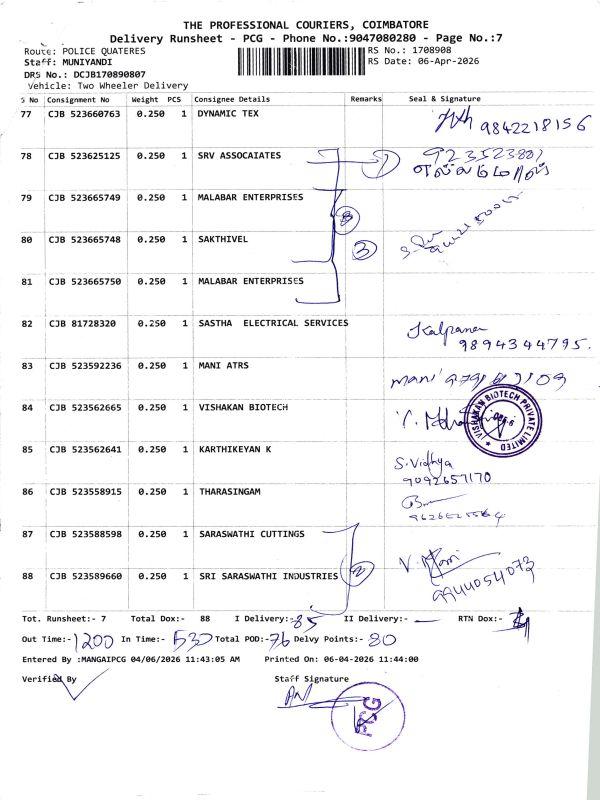 THE PROFESSIONAL COURIERS, COIMBATORE
Delivery Runsheet - PCG - Phone No.:9047080280 - Page No.:7
Route: POLICE QUATERES RS No.: 1708908
Staff: MUNIYANDI RS Date: 06-Apr-2026
DRS No.: DCJB170890807
Vehicle: Two Wheeler Delivery
S No Consignment No Weight PCS Consignee Details Remarks Seal & Signature
77 CJB 523660763 0.250 1 DYNAMIC TEX 9842218156
78 CJB 523625125 0.250 1 SRV ASSOCAIATES 1
79 CJB 523665749 0.250 1 MALABAR ENTERPRISES
80 CJB 523665748 0.250 1 SAKTHIVEL 3
81 CJB 523665750 0.250 1 MALABAR ENTERPRISES
82 CJB 81728320 0.250 1 SASTHA ELECTRICAL SERVICES Kalpana
9894344795.
83 CJB 523592236 0.250 1 MANI ATRS mani
84 CJB 523562665 0.250 1 VISHAKAN BIOTECH VISHAKAN BIOTECH PRIVATE LIMITED
85 CJB 523562641 0.250 1 KARTHIKEYAN K S. Vidhya
9092657170
86 CJB 523558915 0.250 1 THARASINGAM
87 CJB 523588598 0.250 1 SARASWATHI CUTTINGS
88 CJB 523589660 0.250 1 SRI SARASWATHI INDUSTRIES 2 9944054073
Tot. Runsheet:- 7 Total Dox:- 88 I Delivery:- 85 II Delivery:- — RTN Dox:-
Out Time:- 1200 In Time:- 530 Total POD:- 76 Delvy Points:- 80
Entered By :MANGAIPCG 04/06/2026 11:43:05 AM Printed On: 06-04-2026 11:44:00
Verified By Staff Signature
PCG